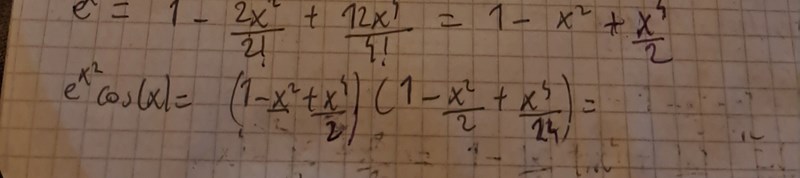 e^x² = 1 - 2x²/2! + 12x⁴/4! = 1 - x² + x⁴/2
e^x² cos(x) = (1 - x² + x⁴/2) (1 - x²/2 + x⁴/24) =